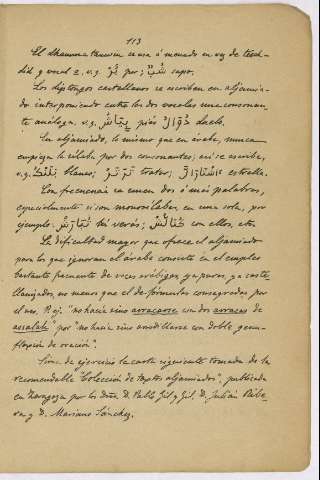 113
El dhamma tanuin se usa á menudo en vez de tesch-
did y vocal 2. v.g. بُرٌ por; شَبٌ sapo.
Los diptongos castellanos se escriben en aljamia-
do interponiendo entre las dos vocales una consonan-
te análoga. v.g. piás duelo.
En aljamiado, lo mismo que en árabe, nunca
empieza la sílaba por dos consonantes; así se escribe,
v.g. blanco; tratar; estrella.
Con frecuencia se unen dos ó más palabras,
especialmente si son monosílabas, en una sola, por
ejemplo: ni verás; con ellos, etc.
La dificultad mayor que ofrece el aljamiado
para los que ignoran el árabe consiste en el empleo
bastante frecuente de voces arábigas ya puras, ya caste-
llanizadas, no menos que el de fórmulas consagradas por
el uso. P. ej. "no hacía sino arracarse con dos arracas de
assalah" por "no hacía sino arrodillarse con doble genu-
flexión de oración".
Sirva de ejercicio la carta siguiente tomada de la
recomendable "Colección de textos aljamiados", publicada
en Zaragoza por los Sres. D. Pablo Gil y Gil, D. Julián Ribe-
ra y D. Mariano Sánchez.